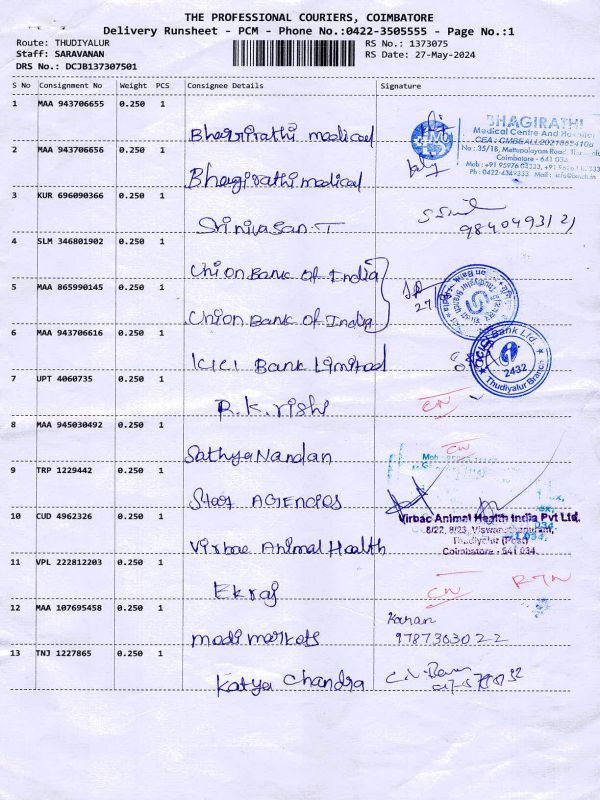 THE PROFESSIONAL COURIERS, COIMBATORE
Delivery Runsheet - PCM - Phone No.:0422-3505555 - Page No.:1
Route: THUDIYALUR RS No.: 1373075
Staff: SARAVANAN RS Date: 27-May-2024
DRS No.: DCJB137307501
S No Consignment No Weight PCS Consignee Details Signature
1 MAA 943706655 0.250 1 Bhagirathi medical
BHAGIRATHI
Medical Centre And Hospital
No : 35/18, Mettupalayam Road,
Coimbatore - 641 034.
2 MAA 943706656 0.250 1 Bhagirathi medical
Ph : 0422-4349333 Mail : info@bmch.in
3 KUR 696090366 0.250 1 Srinivasan.T
4 SLM 346801902 0.250 1 Union Bank of India
5 MAA 865990145 0.250 1 Union Bank of India
27
Thudiyalur Branch
6 MAA 943706616 0.250 1 ICICI Bank Limited
ICICI Bank Ltd.
2432
Thudiyalur Branch
7 UPT 4060735 0.250 1 R.K.rishi CN
8 MAA 945030492 0.250 1 Sathya Nandan CN
9 TRP 1229442 0.250 1 Star AGENCIES
10 CUD 4962326 0.250 1 Virbac Animal Health
Virbac Animal Health India Pvt Ltd.
8/22, 8/23, Viswanathapuram,
Thudiyalur (Post)
Coimbatore - 641 034.
11 VPL 222812203 0.250 1 Ekraj CN RTN
12 MAA 107695458 0.250 1 modi markets Karan
9787303022
13 TNJ 1227865 0.250 1 Katya Chandra